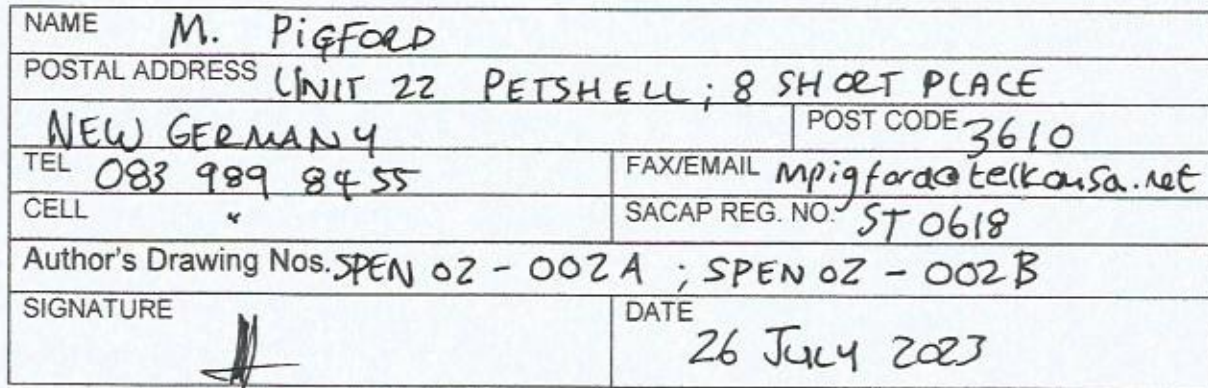 NAME M. PIGFORD
POSTAL ADDRESS UNIT 22 PETSHELL; 8 SHORT PLACE
NEW GERMANY POST CODE 3610
TEL 083 989 8455 FAX/EMAIL mpigford@telkomsa.net
CELL " SACAP REG. NO. ST 0618
Author's Drawing Nos. SPEN 02 - 002A ; SPEN 02 - 002B
SIGNATURE DATE
26 July 2023